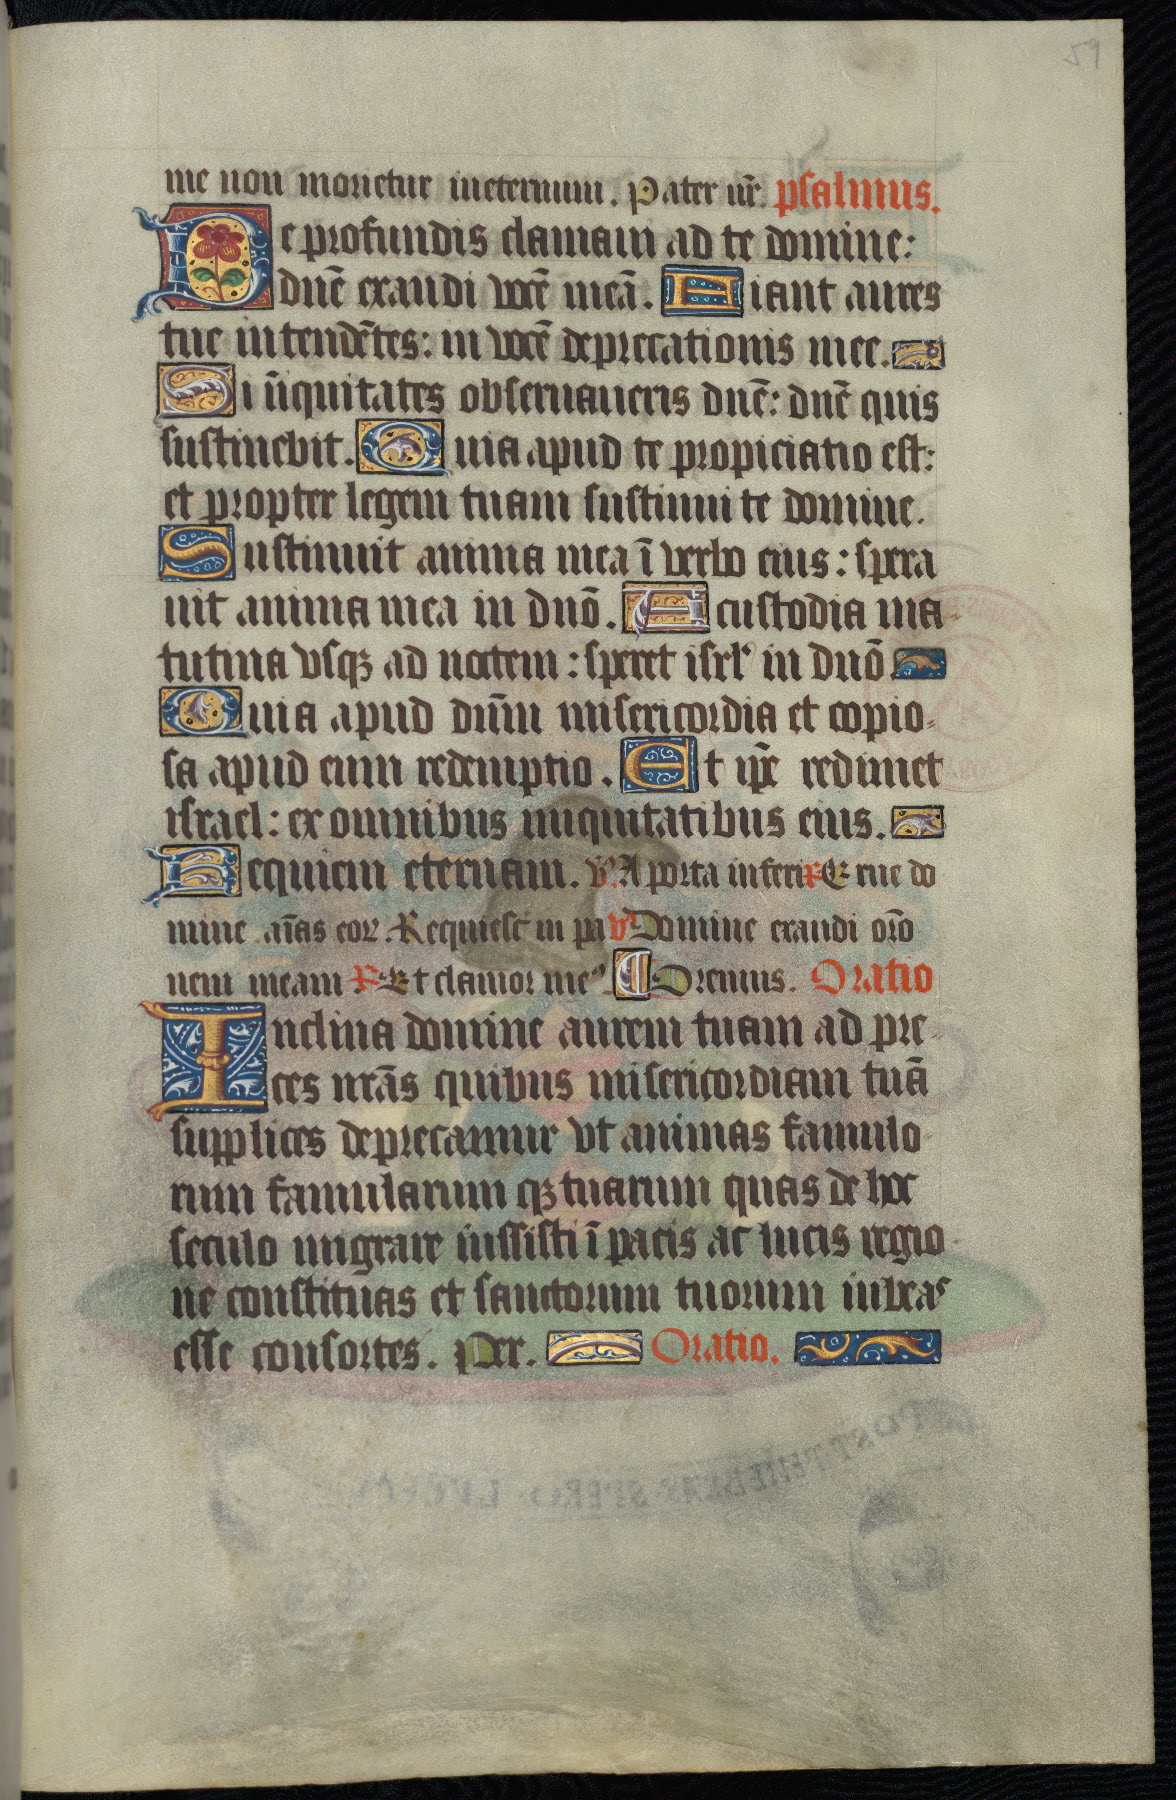 59
me non mouetur ineternum. Pater nr̄. psalmus.
De profundis clamaui ad te domine:
dn̄e exaudi vocē meā. Fiant aures
tue intendētes: in vocē deprecationis mee.
Si iniquitates obseruaueris dn̄e: dn̄e quis
sustinebit. Quia apud te propiciatio est:
et propter legem tuam sustinui te domine.
Sustinuit anima mea ī verbo eius: spera
uit anima mea in dn̄o. A custodia ma-
tutina vsqꝫ ad noctem: speret isrl' in dn̄o
Quia apud dn̄m misericordia et copio-
sa apud eum redemptio. Et ip̄e redimet
israel: ex omnibus iniquitatibus eius.
Requiem eternam. V̄. A porta inferi R̄ Erue do
mine an̄as eoꝝ. Requiesc̄t in pa V̄ Domine exaudi oro
nem meam R̄ Et clamor meꝰ Oremus. Oratio
Inclina domine aurem tuam ad pre-
ces nr̄as quibus misericordiam tuā
supplices deprecamur vt animas famulo-
rum famularum qꝫ tuarum quas de hoc
seculo migrare iussisti ī pacis ac lucis regio-
ne constituas et sanctorum tuorum iubeas
esse consortes. Per. Oratio.
POST TENEBRAS SPERO LVCEM